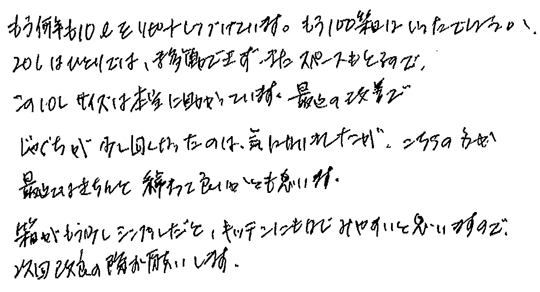 もう何年も10Lをリピートしつづけています。もう100箱はいったでしょうか、
20Lはひとりでは、移動できず、またスペースもとるので、
この10Lサイズは本当に助かっています。最近の改善で
じゃぐちが少し固くなったのは、気になりましたが、こちらの方が
最近ではきちんと締って良いかとも思います。
箱がもう少しシンプルだと、キッチンにもなじみやすいと思いますので、
次回改良の際お願いします。